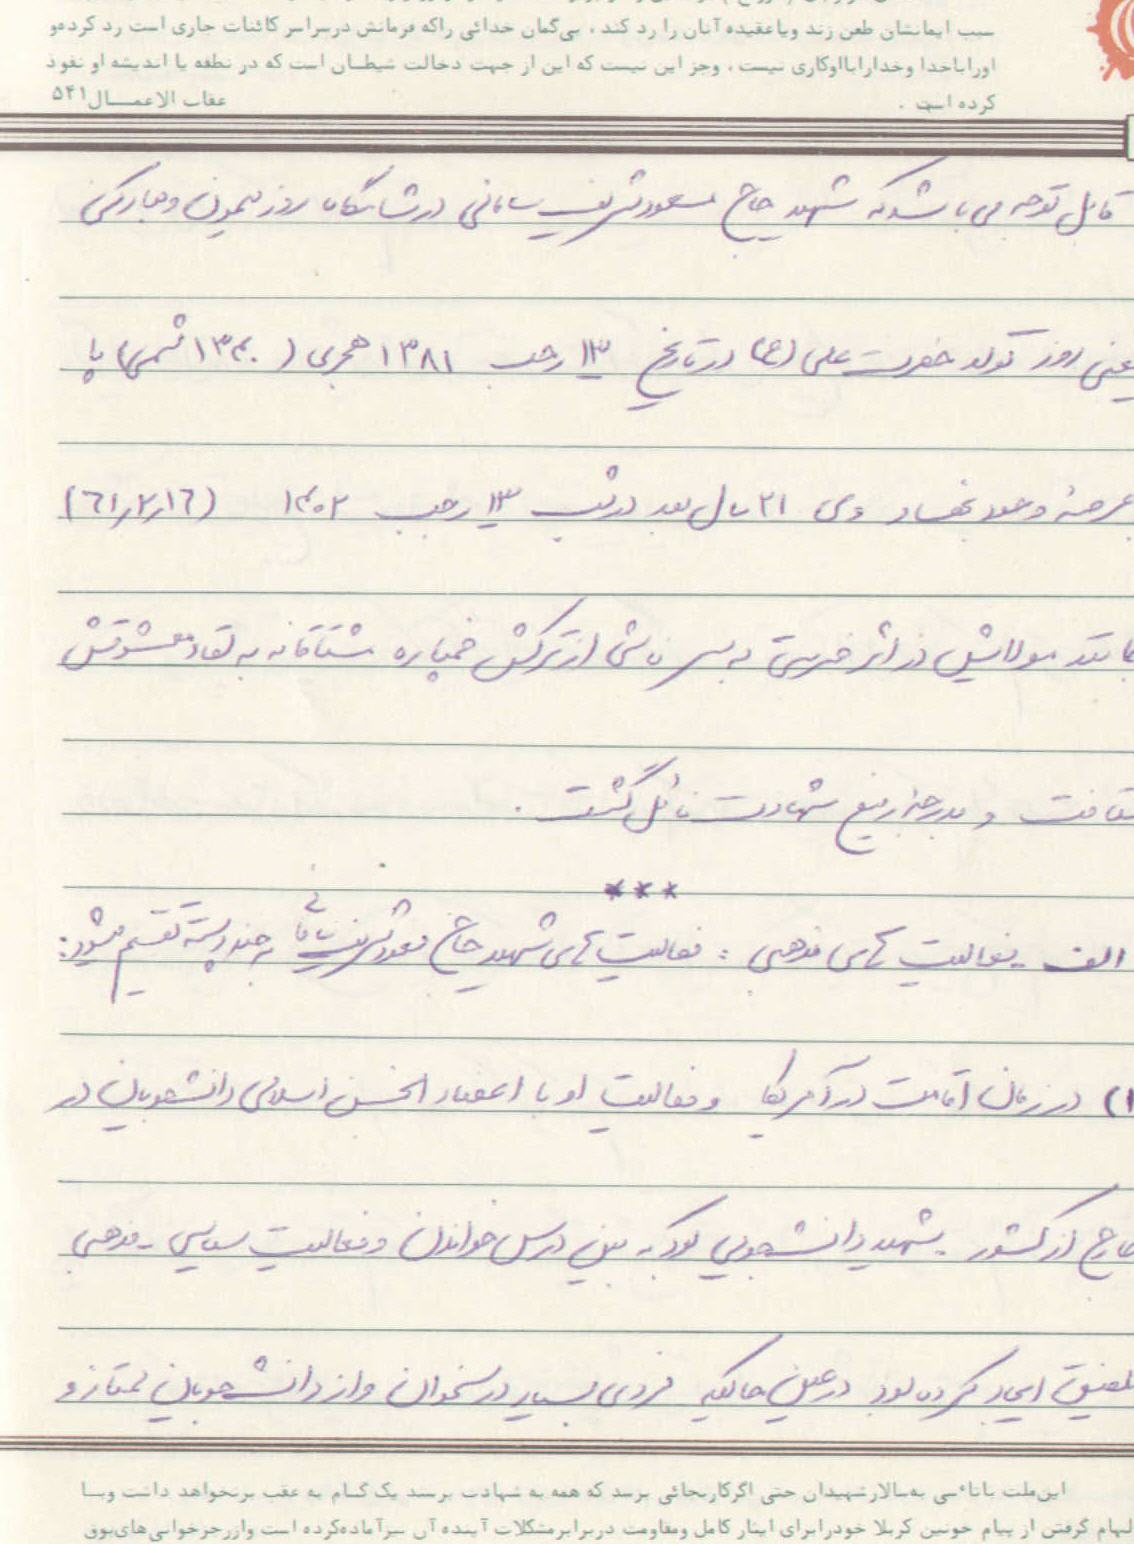 سبب ایمانشان طعن زند ویاعقیده آنان را رد کند ، بی‌گمان خدائی راکه فرمانش درسراسر کائنات جاری است رد کرده‌و
اوراباخدا وخدارابااوکاری نیست ، وجز این نیست که این از جهت دخالت شیطــان است که در نطفه یا اندیشه او نفوذ
کرده است .
عقاب الاعمــال۵۴۱
قابل توجه می باشد که شهید حاج مسعود شریف سامانی در شامگاه روز میمون و مبارکی
یعنی روز تولد حضرت علی (ع) در تاریخ ۱۳ رجب ۱۳۸۱ هجری (۱۳۴۰ شمسی) پا
بعرصهٔ وجود نهاد وی ۲۱ سال بعد در شب ۱۳ رجب ۱۴۰۲ (۶۱٫۲٫۱۶)
مانند مولایش در اثر ضربتی به سر ناشی از ترکش خمپاره مشتاقانه به لقاء معشوقش
شتافت و بدرجهٔ رفیع شهادت نائل گشت .
***
الف - فعالیت های مذهبی : فعالیت های شهید حاج مسعود شریف سامانی به چند دسته تقسیم میشود:
۱) در زمان اقامت در آمریکا و فعالیت او با اعضاء انجمن اسلامی دانشجویان در
خارج از کشور . شهید دانشجویی بود که بین درس خواندن و فعالیت سیاسی - مذهبی
تلفیق ایجاد کرده بود در عین حالیکه فردی بسیار درسخوان و از دانشجویان ممتاز و
این‌ملت باتاءسی به‌سالارشهیدان حتی اگرکاربجائی برسد که همه به شهادت برسند یک گــام به عقب برنخواهد داشت وبــا
الهام گرفتن از پیام خونین کربلا خودرابرای ایثار کامل ومقاومت دربرابرمشکلات آینده آن سرآماده‌کرده است وازرجزخوانی‌های‌بوق